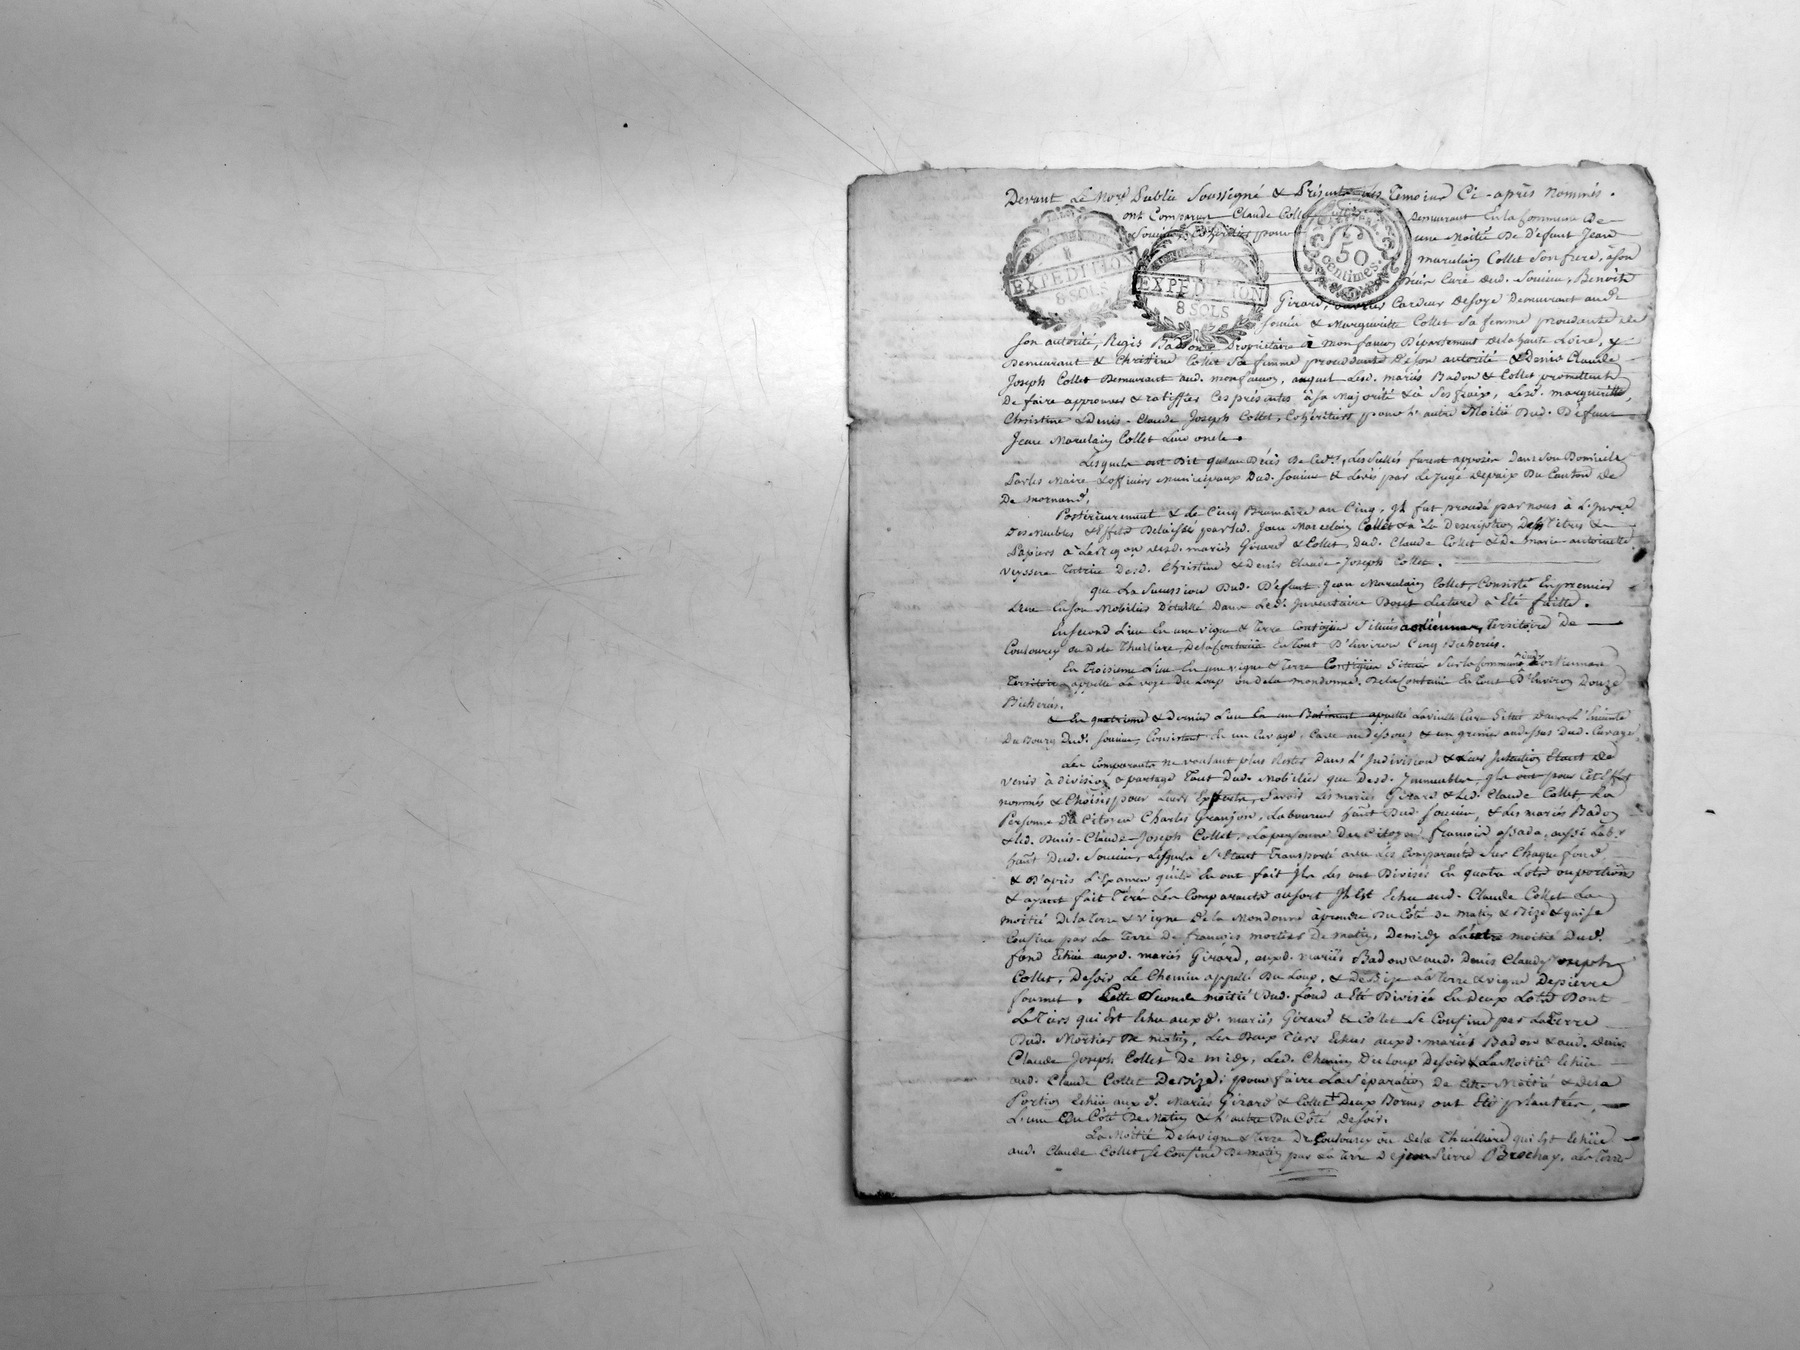 Devant Le Nore Public Soussigné & Présents les Temoins Ci-après Nommés.
ont Comparus Claude Collet demeurant En la Commune De
Soucieu, Cohéritier pour une Moitié De Défunt Jean
Marcelain Collet Son frere, à Son
Curé dud. Soucieu, Benoit
Girard, Cardeur De Soye Demeurant aud.
Soucieu & Marguerite Collet Sa femme procedante de
Son autorité, Regis Badon Propriétaire à Monfaucon Département de la haute Loire, y
Demeurant & Christine Collet Sa femme procedante De Son autorité & Denis Claude
Joseph Collet Demeurant aud. Monfaucon, auquel Lesd. mariés Badon & Collet promettent
De faire approuver & ratiffier Ces présentes à Sa Majorité & à Ses fraix, Lesd. marguerite,
Christine & Denis-Claude Joseph Collet, Cohéritiers pour L'autre Moitié Dud. Défunt
Jean Marcelain Collet Leur oncle.
Lesquels ont Dit qu'au Décès De Ced., Les Scellés furent apposés Dans Son Domicile
Par les Maire & officiers Municipaux Dud. Soucieu & Levés par Le Juge De paix Du Canton De
De Mornand,
Postérieurement & Le Cinq Brumaire an Cinq, Il fut procédé par nous à L'Invre
Des Meubles & Effets Délaissés par led. Jean Marcelain Collet & à La Description Des Titres &
Papiers à La réqon desd. mariés Girard & Collet, Dud. Claude Collet & De Marie-antoinette
Veyssere Tutrice Desd. Christine & Denis Claude-Joseph Collet.
Que La Succession Dud. Défunt Jean Marcelain Collet, Consiste En premier
Lieu En Son Mobilier Détaillé Dans Led. Inventaire Dont Lecture à Eté faitte.
En Second Lieu En une vigne & Terre Contigüe Situés Territoire de
Coulouvrey ou de la Thuilliere, De la Contenüe En Tout D'Environ Cinq Bicherés.
En Troisieme Lieu En une vigne & Terre Contigües Situés Sur la Commune
Territoire appellé La voye Du Loup ou de la Mondonne, De la Contenüe En Tout D'Environ Douze
Bicherés.
& En quatrieme & Dernier Lieu En un Batiment appellé La vieille Cure Situé dans L'Enceinte
Du Bourg Dud. Soucieu, Consistant En un Cuvage, Cave au Dessous & un grenier au dessus Dud. Cuvage.
Les Comparants ne voulant plus Rester Dans L'Indivision & Leur Intention Etant De
venir à division & partage Tant Dud. Mobilier que Desd. Immeubles, Ils ont pour Cet Effet
nommés & Choisis pour Leurs Experts, Savoir Les mariés Girard & Led. Claude Collet La
Personne Du Citoyen Charles Granjon, Laboureur hant Dud. Soucieu, & Les mariés Badon
& Led. Denis-Claude-Joseph Collet, La personne Du Citoyen François assada, aussi Labr
hant Dud. Soucieu, Lesquels S'Etant Transporté avec Les Comparants Sur Chaque fond,
& D'après L'Examen qu'ils En ont fait Ils Les ont Divisés En quatre Lots ou portions
& ayant fait Tirer Les Comparants au Sort Il Est Echue aud. Claude Collet La
moitié De la Terre & vigne De la Mondonne à prendre Du Côté De matin & Bize & qui Se
Confine par La Terre De François Mortier De Matin, De midy L'autre moitié Dud.
fond Echüe auxd. mariés Girard, auxd. mariés Badon & aud. Denis Claude Joseph
Collet, De Soir Le Chemin appellé Du Loup, & De Bize La Terre & vigne De pierre
fournet. Cette Seconde moitié Dud. fond a Eté Divisée En deux Lots Dont
Le Tiers qui Est Echue auxd. mariés Girard & Collet Se Confine par La Terre
Dud. Mortier De matin, Les Deux Tiers Echus auxd. mariés Badon & aud. Denis
Claude Joseph Collet De midy, Led. Chemin Du Loup De Soir & La Moitié Echüe
aud. Claude Collet De Bize; pour faire La Séparation De Cette Moitié & De la
Portion Echüe auxd. Mariés Girard & Collet Deux Bornes ont Eté plantées,
L'une Du Côté De Matin & L'autre Du Côté De Soir.
La Moitié De la vigne & Terre De Coulouvrey ou De la Thuilliere qui Est Echüe
aud. Claude Collet, Se Confine De matin par La Terre De jean Pierre Brochay, La Terre
EXPEDITION
8 SOLS
EXPEDITION
8 SOLS
50
centimes